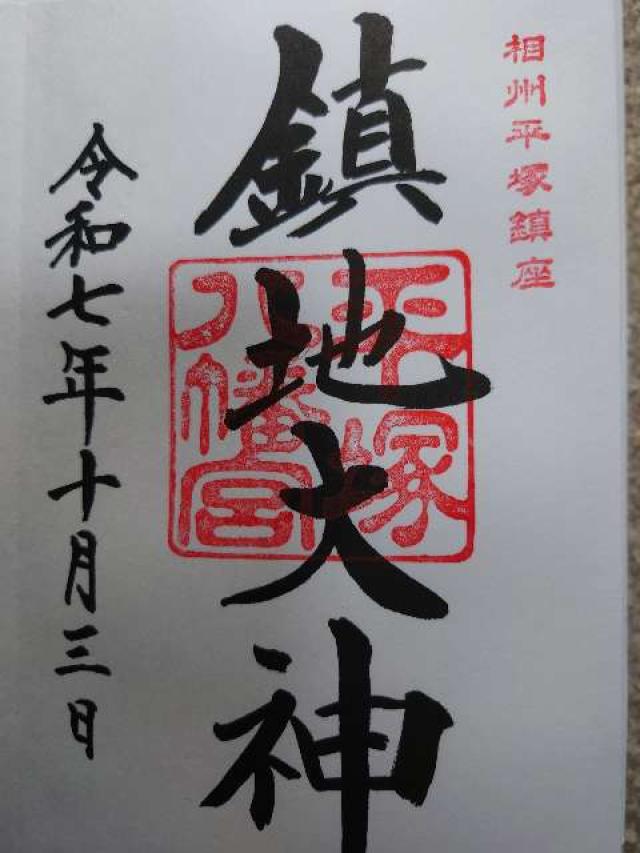 相州平塚鎮座
鎮地大神
平塚
八幡宮
令和七年十月三日